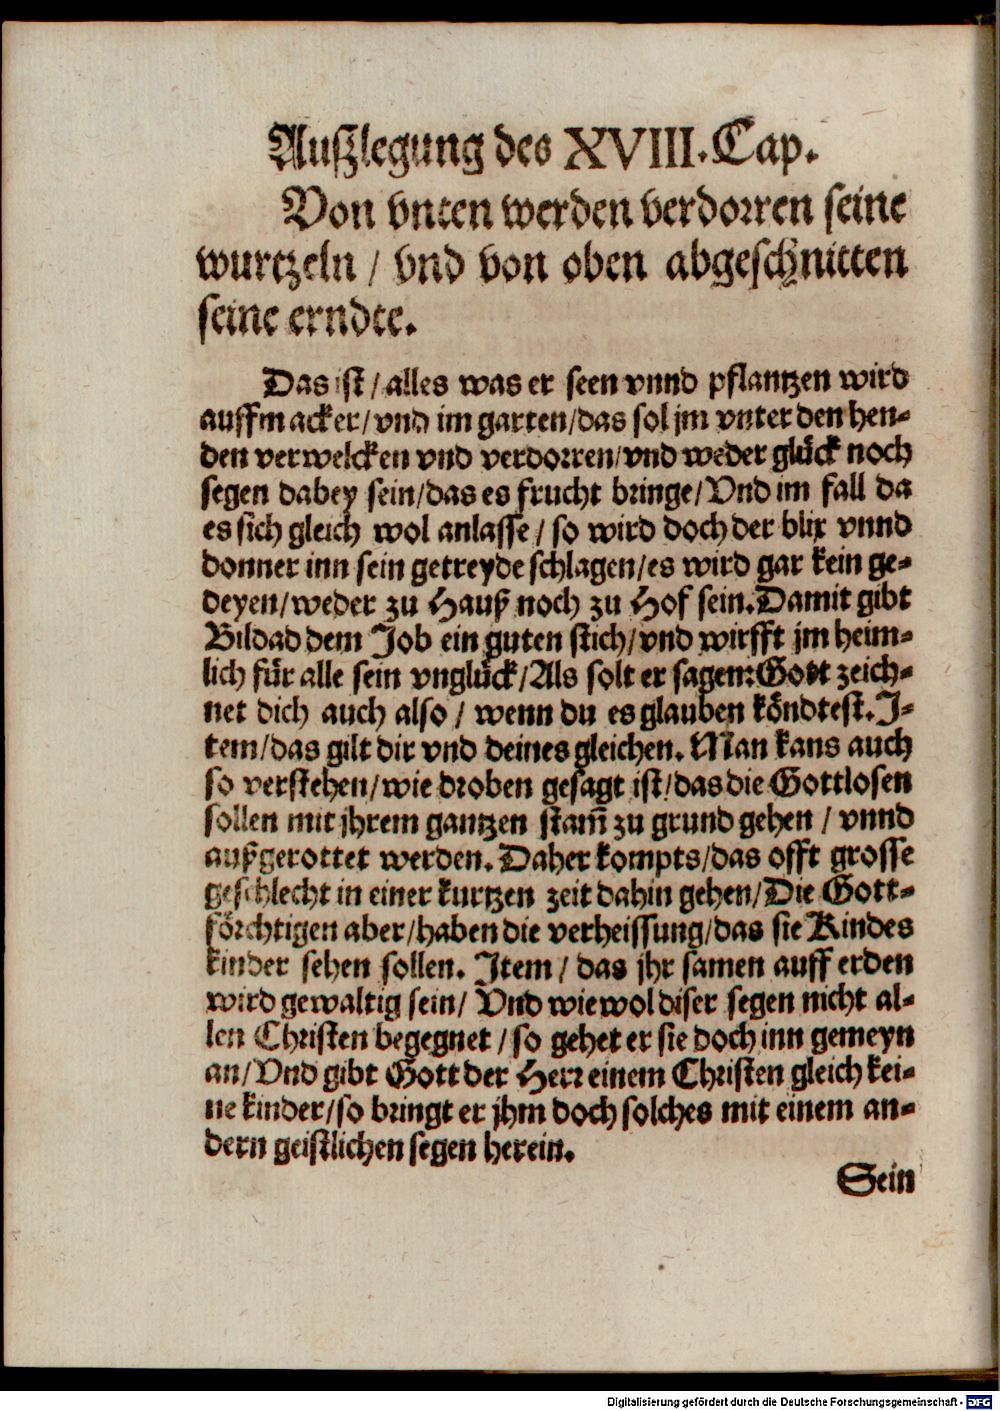 Außlegung des XVIII. Cap.
Von vnten werden verdorren seine
wurtzeln / vnd von oben abgeschnitten
seine erndte.
Das ist / alles was er seen vnnd pflantzen wird
auffm acker / vnd im garten / das sol jm vnter den hen-
den verwelcken vnd verdorren / vnd weder glück noch
segen dabey sein / das es frucht bringe / Vnd im fall da
es sich gleich wol anlasse / so wird doch der blix vnnd
donner inn sein getreyde schlagen / es wird gar kein ge-
deyen / weder zu Hauß noch zu Hof sein. Damit gibt
Bildad dem Job ein guten stich / vnd wirfft jm heim-
lich für alle sein vnglück / Als solt er sagen: Gott zeich-
net dich auch also / wenn du es glauben köndtest. J-
tem / das gilt dir vnd deines gleichen. Man kans auch
so verstehen / wie droben gesagt ist / das die Gottlosen
sollen mit jhrem gantzen stam̃ zu grund gehen / vnnd
außgerottet werden. Daher kompts / das offt grosse
geschlecht in einer kurtzen zeit dahin gehen / Die Gott-
förchtigen aber / haben die verheissung / das sie Kindes
kinder sehen sollen. Jtem / das jhr samen auff erden
wird gewaltig sein / Vnd wiewol diser segen nicht al-
len Christen begegnet / so gehet er sie doch inn gemeyn
an / Vnd gibt Gott der Herr einem Christen gleich kei-
ne kinder / so bringt er jhm doch solches mit einem an-
dern geistlichen segen herein.
Sein
Digitalisierung gefördert durch die Deutsche Forschungsgemeinschaft - DFG